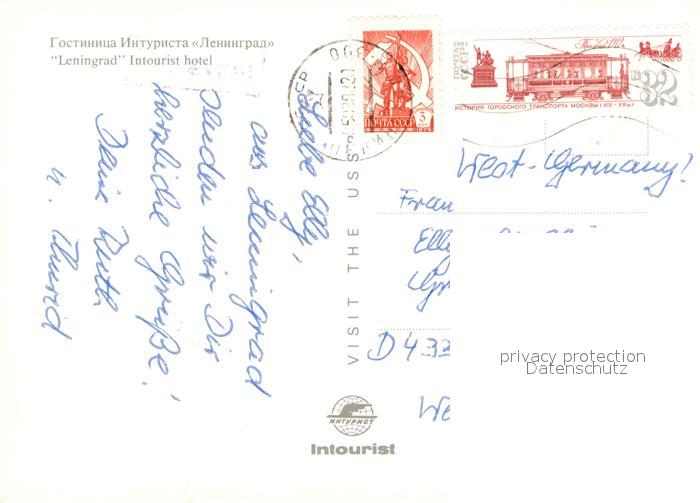 Гостиница Интуриста «Ленинград»
"Leningrad" Intourist hotel
Liebe Elly,
aus Leningrad
senden wir Dir
herzliche Grüße!
Deine Ruth
u.
VISIT THE USS
ПОЧТА СССР 3
1976
ПОЧТА СССР
1981
32
ИСТОРИЯ ГОРОДСКОГО ТРАНСПОРТА МОСКВЫ (XIX - XX вв.)
West-Germany!
Frau
Elly
D 433
We
privacy protection
Datenschutz
ИНТУРИСТ
Intourist